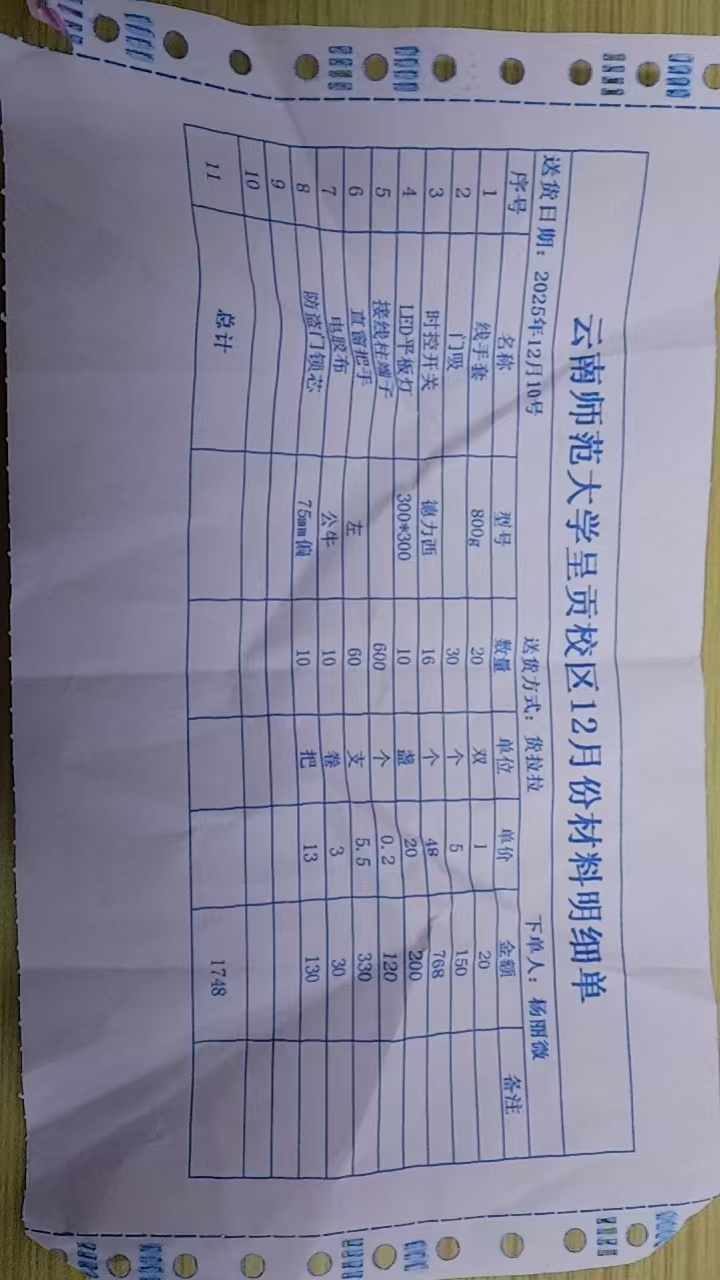 云南师范大学呈贡校区12月份材料明细单
送货日期：2025年12月10号 送货方式：货拉拉 下单人：杨丽微
序号 名称 型号 数量 单位 单价 金额 备注
1 线手套 800g 20 双 1 20
2 门吸 30 个 5 150
3 时控开关 德力西 16 个 48 768
4 LED平板灯 300*300 10 盏 20 200
5 接线柱端子 600 个 0.2 120
6 直窗把手 左 60 支 5.5 330
7 电胶布 公牛 10 卷 3 30
8 防盗门锁芯 75mm偏 10 把 13 130
9
10
11 总计 1748